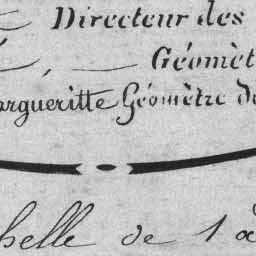 Directeur des
Géomèt
orgueritte Géomètre d
helle de 1 à